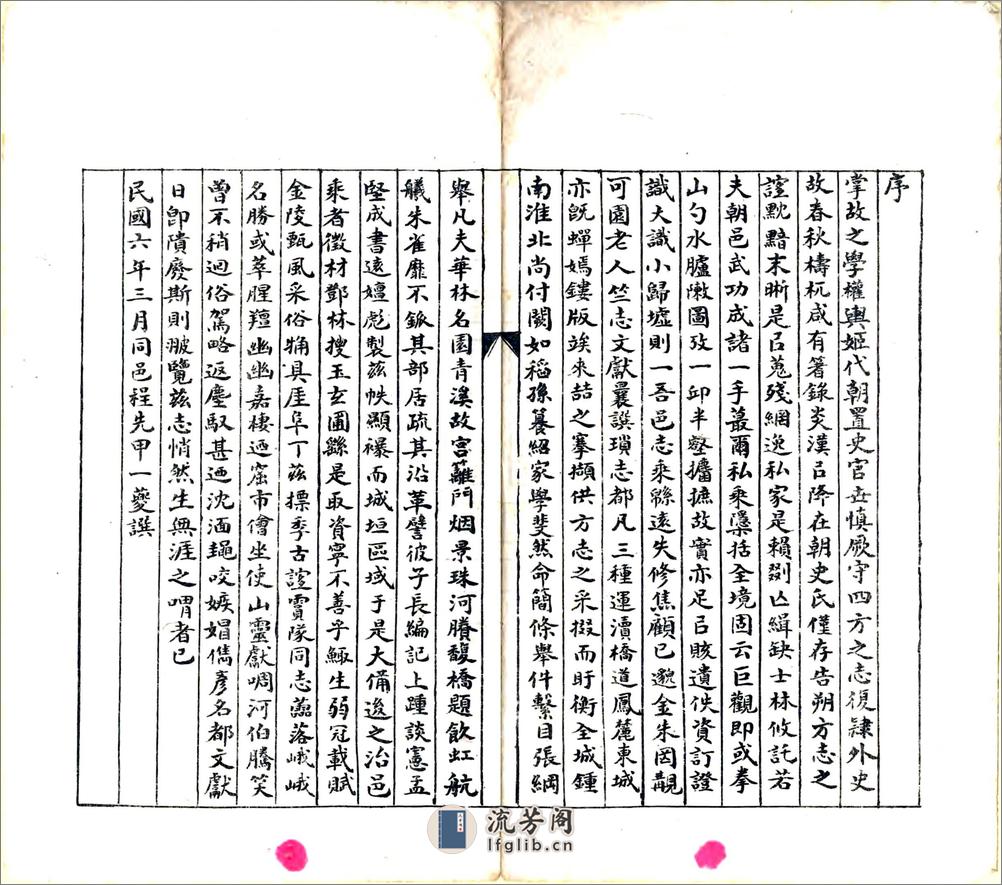 序
掌故之學權輿姬代朝置史官世慎厥守四方之志復隸外史
故春秋檮杌咸有箸錄炎漢㠯降在朝史氏僅存告朔方志之
誼黕黯末晰是㠯蒐殘網逸私家是賴剟亾緝缺士林攸託若
夫朝邑武功成諸一手蕞爾私乘櫽括全境固云巨觀即或拳
山勺水臚陳圖攷一邱半壑攟摭故實亦足㠯賅遺佚資訂證
識大識小歸墟則一吾邑志乘緜遠失修焦顧已邈金朱罔覯
可園老人竺志文獻曩譔瑣志都凡三種運瀆橋道鳳麓東城
亦旣蟬嫣鏤版竢來喆之搴擷供方志之采掇而盱衡全城鍾
南淮北尚付闕如稻孫纂紹家學斐然命簡條舉件繫目張綱
舉凡夫華林名園青溪故宮蘺門烟景珠河賸馥橋題飲虹航
艤朱雀靡不鈲其部居疏其沿革譬彼子長編記上踵談憲孟
堅成書遠嬗彪製茲帙顯襮而城垣區域于是大備逡之治邑
乘者徵材鄧林搜玉玄圃繇是取資寧不善乎鯫生弱冠載賦
金陵甄風采俗觕具厓阜丁茲摽季古誼霣隊同志蠹落峨峨
名勝或萃腥羶幽幽嘉棲迺窟市儈坐使山靈獻啁河伯騰笑
曾不稍迴俗駕略返塵馭甚迺沈湎䵷咬嫉媢儁彥名都文獻
日卽隤廢斯則披覽茲志悄然生無涯之喟者已
民國六年三月同邑程先甲一夔譔
流芳阁
lfglib.cn